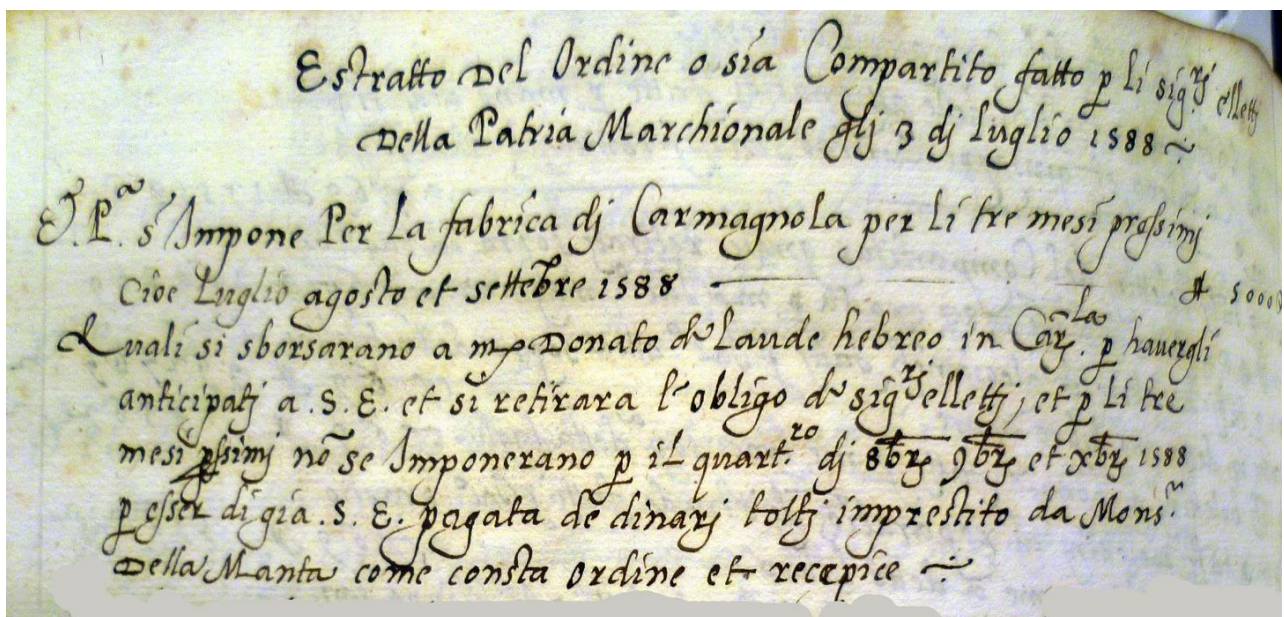 Estratto Del Ordine o sia Compartito fatto p li sig.ri elletti
Della Patria Marchionale gli 3 dj luglio 1588
E.P.a s'Impone Per La fabrica dj Carmagnola per li tre mesi prossimj
Cioe Luglio agosto et settēbre 1588 5000
Quali si sborsarano a mr Donato de Laude hebreo in Car.la p havergli
anticipatj a .S.E. et si retirara l'obligo de sig.rj elletti, et p li tre
mesi pssimj nō se Imponerano p il quart.ro dj 8brē 9brē et xbrē 1588
p esser di gia .S.E. pagata de dinarj toltj imprestito da Mons.r
Della Manta come consta ordine et recepice